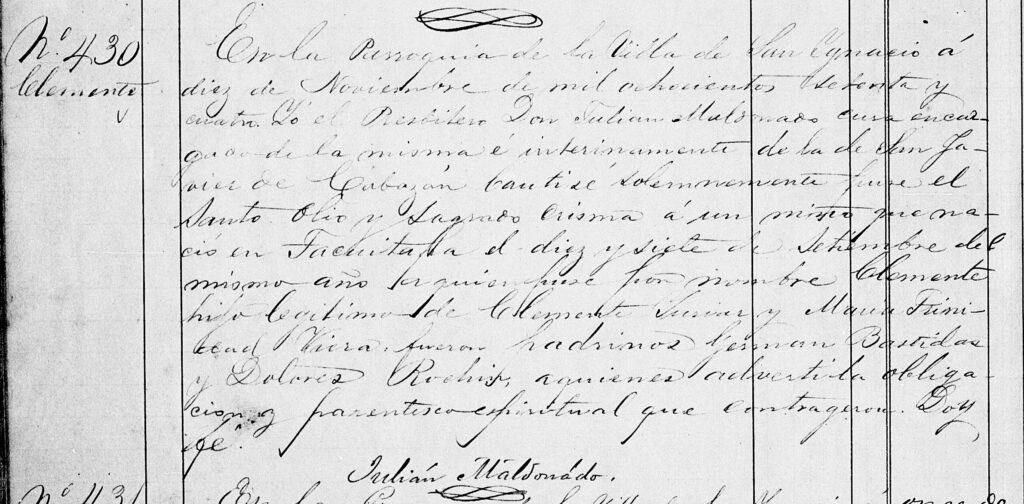 No. 430
Clemente
En la Parroquia de la Villa de San Ygnacio á
diez de Noviembre de mil ochocientos setenta y
cuatro. Yó el Presbitero Don Julian Maldonado cura encar-
gado de la misma é interinamente de la de San Ja-
vier de Cabazán bautisé solemnemente puse el
Santo Olio y Sagrado Crisma á un niño que na-
cio en Tacuitapa el diez y siete de Setiembre del
mismo año a quien puse por nombre Clemente
hijo lecitimo de Clemente y Maria Trini-
dad Viera, fueron padrinos German Bastidas
y Dolores a quienes adverti la obliga-
cion y parentesco espiritual que contrageron. Doy
fé.
Julián Maldonádo.
No. 431
En la